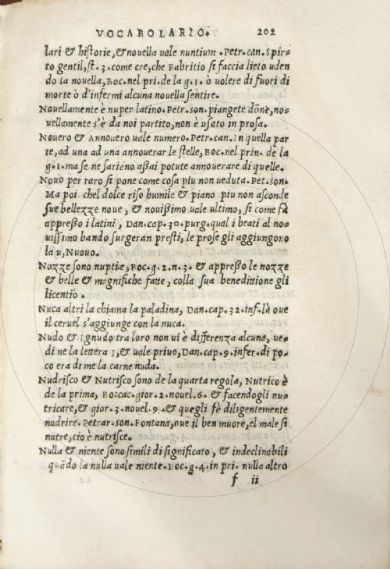 VOCABOLARIO. 202
lari & historie, & nouella uale nuntium. Petr. can. Spir-
to gentil, st. 3. come cre, che Fabritio si faccia lieto uden
do la nouella, Boc. nel pri. de la g. 1. ò uolere di fuori di
morte ò d'infermi alcuna nouella sentire.
Nouellamente è nuper latino. Petr. son. piangete dõne, no-
uellamente s'è da noi partito, non è usato in prosa.
Nouero & Annouero uale numero. Petr. can. In quella par
te, ad una ad una annouerar le stelle, Boc. nel prin. de la
g. 1. ma se ne sariẽno assai potute annouerare di quelle.
Nouo per raro si pone come cosa piu non ueduta. Pet. son.
Ma poi chel dolce riso humile & piano piu non asconde
sue bellezze noue, & nouissimo uale ultimo, si come fu
appresso i latini, Dan. cap. 30. purg. qual i beati al no-
uissimo bando surgeran presti, le prose gli aggiungono
la u, Nuouo.
Nozze sono nuptiæ, Boc. g. 2. n. 3. & appresso le nozze
& belle & magnifiche fatte, colla sua beneditione gli
licentiò.
Nuca altri la chiama la paladina, Dan. cap. 32. inf. là oue
il ceruel s'aggiunge con la nuca.
Nudo & ignudo tra loro non ui è differenza alcuna, ue-
di ne la lettera I, & uale priuo, Dan. cap. 9. infer. di po-
co era di me la carne nuda.
Nudrisco & Nutrisco sono de la quarta regola, Nutrico è
de la prima, Boccac. gior. 2. nouel. 6. & facendogli nu-
tricare, & gior. 3. nouel. 9. & quegli fè diligentemente
nudrire. Petrar. son. Fontana, oue il ben muore, el male si
nutre, cio è nutrisce.
Nulla & niente sono simili di significato, & indeclinabili
quãdo la nulla uale niente. Boc. g. 4. in pri. nulla altro
f ii